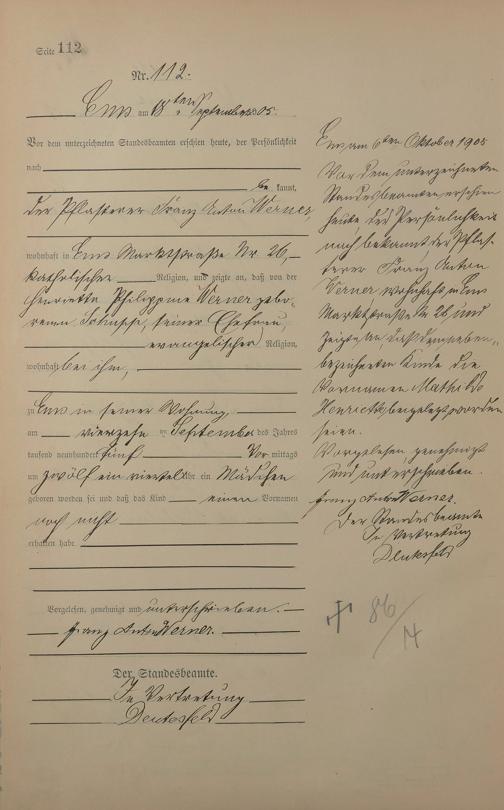 Seite 112
Nr. 112.
Ems am 18ten September 1905.
Vor dem unterzeichneten Standesbeamten erschien heute, der Persönlichkeit
nach
be kannt,
der Pflasterer Franz Anton Werner,
wohnhaft in Ems Marktstraße Nr. 26,
katholischer Religion, und zeigte an, daß von der
Henriette Philippine Werner gebo-
renen Schupp, seiner Ehefrau,
evangelischer Religion,
wohnhaft bei ihm,
zu Ems in seiner Wohnung,
am vierzehn ten September des Jahres
tausend neunhundert fünf Vor mittags
um zwölf ein viertel Uhr ein Mädchen
geboren worden sei und daß das Kind einen Vornamen
noch nicht
erhalten habe
Vorgelesen, genehmigt und unterschrieben.
Franz Anton Werner.
Der Standesbeamte.
In Vertretung
Ems am 6ten Oktober 1905
Vor dem unterzeichneten
Standesbeamten erschien
heute der Persönlichkeit
nach bekannt der Pflas-
terer Franz Anton
Werner wohnhaft in Ems
Marktstraße Nr 26 und
zeigte an, daß dem neben-
bezeichneten Kinde die
Vornamen Mathilde
Henriette beigelegt worden
seien.
Vorgelesen genehmigt
und unterschrieben.
Franz Anton Werner.
Der Standesbeamte
In Vertretung
86/14